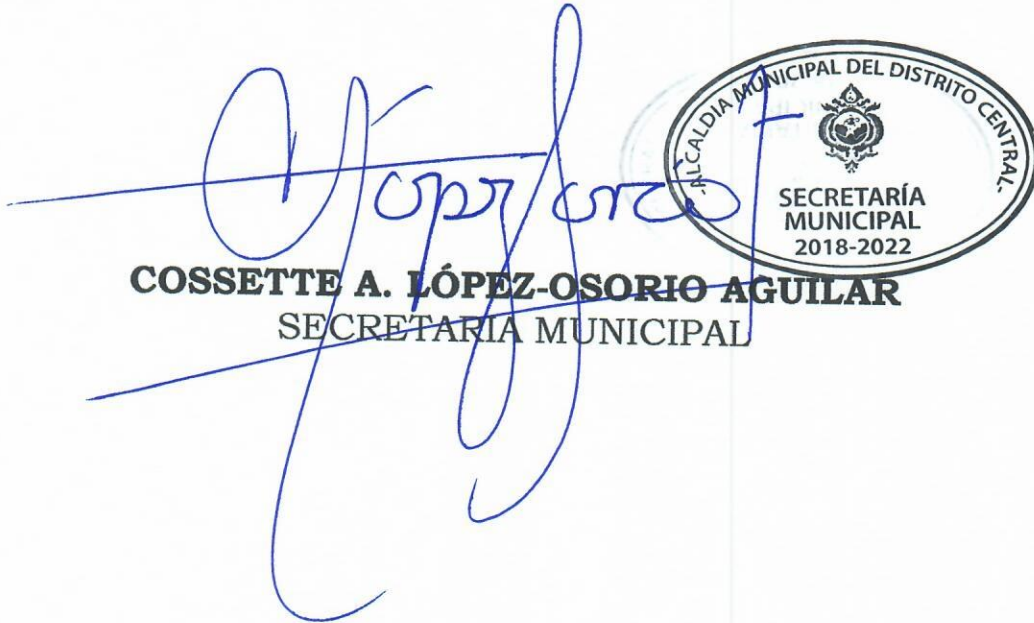 ALCALDIA MUNICIPAL DEL DISTRITO CENTRAL
SECRETARÍA
MUNICIPAL
2018-2022
COSSETTE A. LÓPEZ-OSORIO AGUILAR
SECRETARIA MUNICIPAL